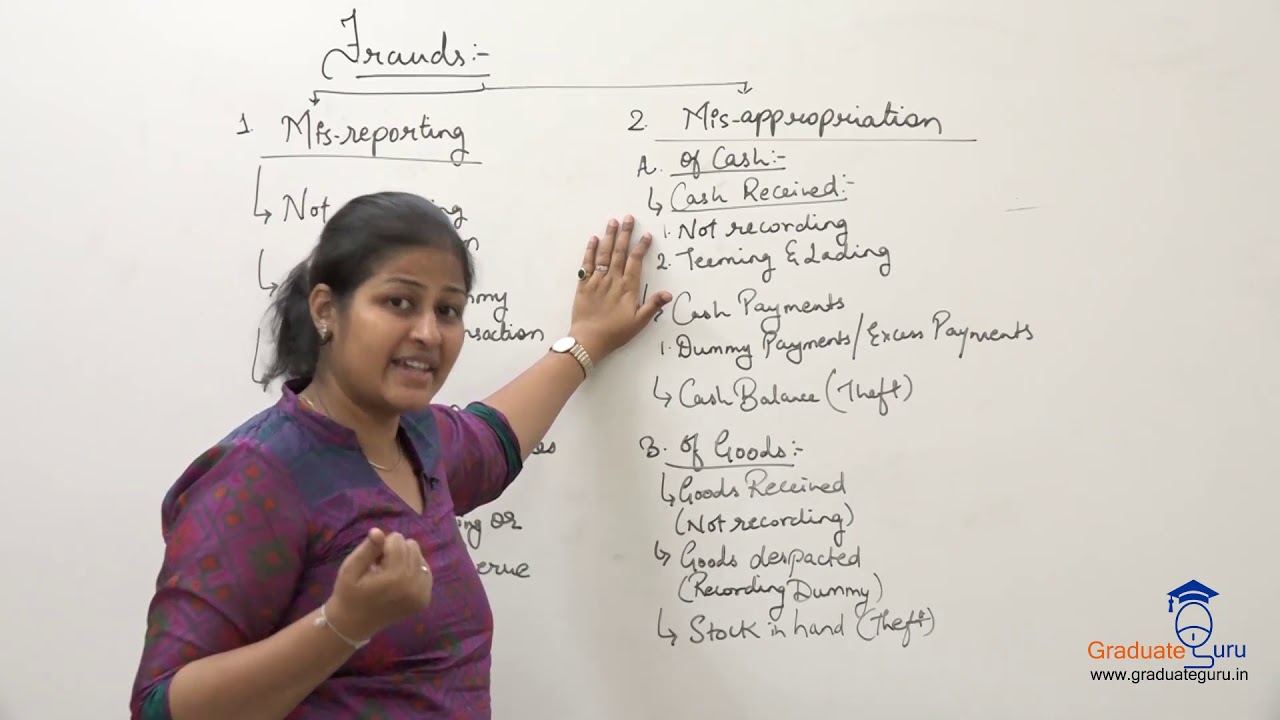 Frauds:-
1. Mis-reporting
Not
2. Mis-appropriation
A. of Cash:-
Cash Received:-
1. Not recording
2. Teeming & Lading
Cash Payments
1. Dummy Payments/Excess Payments
Cash Balance (Theft)
B. of Goods:-
Goods Received
(Not recording)
Goods despacted
(Recording Dummy)
Stock in hand (Theft)
GraduateGuru
www.graduateguru.in